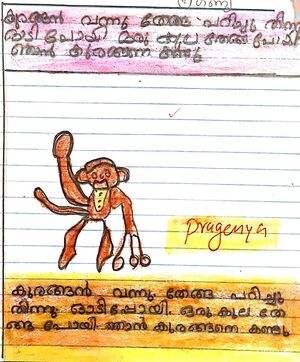 കുരങ്ങൻ വന്നു തേങ്ങ പറിച്ചു തിന്നു
ഓടി പോയി ഒരു കുല തേങ്ങ പോയി
ഞാൻ കുരങ്ങനെ കണ്ടു
pragenya
കുരങ്ങൻ വന്നു. തേങ്ങ പറിച്ചു
തിന്നു ഓടിപ്പോയി. ഒരു കുല തേ
ങ്ങ പോയി. ഞാൻ കുരങ്ങനെ കണ്ടു